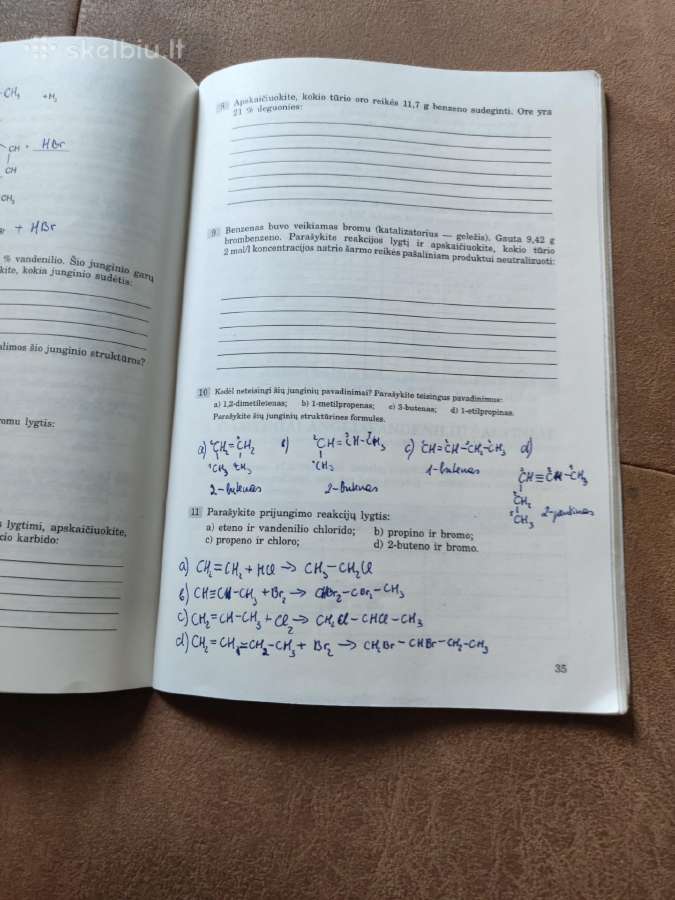 skelbiu.lt
CH₃ +H₂
CH + HBr
CH
CH₃
+ HBr
% vandenilio. Šio junginio garų
kite, kokia junginio sudėtis:
alimos šio junginio struktūros?
romu lygtis:
lygtimi, apskaičiuokite,
cio karbido:
8 Apskaičiuokite, kokio tūrio oro reikės 11,7 g benzeno sudeginti. Ore yra
21 % deguonies:
9 Benzenas buvo veikiamas bromu (katalizatorius — geležis). Gauta 9,42 g
brombenzeno. Parašykite reakcijos lygtį ir apskaičiuokite, kokio tūrio
2 mol/l koncentracijos natrio šarmo reikės pašaliniam produktui neutralizuoti:
10 Kodėl neteisingi šių junginių pavadinimai? Parašykite teisingus pavadinimus:
a) 1,2-dimetiletenas; b) 1-metilpropenas; c) 3-butenas; d) 1-etilpropinas.
Parašykite šių junginių struktūrines formules.
a) ²CH=³CH b) ²CH=³CH-⁴CH₃ c) ¹CH=²CH-³CH₂-⁴CH₃ d)
¹CH₃ ⁴CH₃ ¹CH₃ 1-butenas ³CH≡²CH-¹CH₃
2-butenas 2-butenas ⁴CH₂
⁵CH₃ 2-pentinas
11 Parašykite prijungimo reakcijų lygtis:
a) eteno ir vandenilio chlorido; b) propino ir bromo;
c) propeno ir chloro; d) 2-buteno ir bromo.
a) CH₂=CH₂ + HCl → CH₃-CH₂Cl
b) CH≡CH-CH₃ + Br₂ → CHBr₂-CBr₂-CH₃
c) CH₂=CH-CH₃ + Cl₂ → CH₂Cl-CHCl-CH₃
d) CH₂=CH₂=CH₂-CH₃ + Br₂ → CH₂Br-CHBr-CH₂-CH₃
35